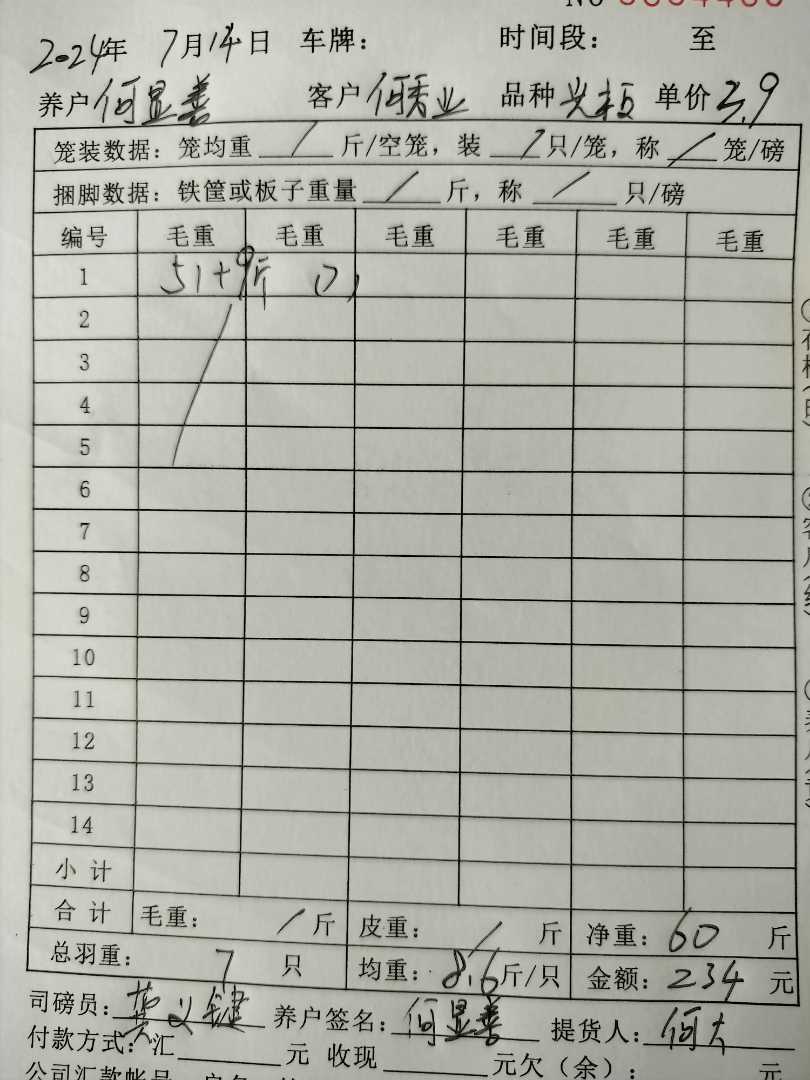 2024年 7月14日 车牌: 时间段: 至
养户 何显善 客户 何秀业 品种 光板 单价 3.9
笼装数据: 笼均重 / 斤/空笼, 装 / 只/笼, 称 / 笼/磅
捆脚数据: 铁筐或板子重量 / 斤, 称 / 只/磅
编号 毛重 毛重 毛重 毛重 毛重 毛重
1 51+9斤
2
3
4
5
6
7
8
9
10
11
12
13
14
小计
合计 毛重: / 斤 皮重: / 斤 净重: 60 斤
总羽重: 7 只 均重: 8.6 斤/只 金额: 234 元
司磅员: 养户签名: 何显善 提货人: 何大
付款方式: 汇 元 收现 元欠(余): 元
公司汇款帐号